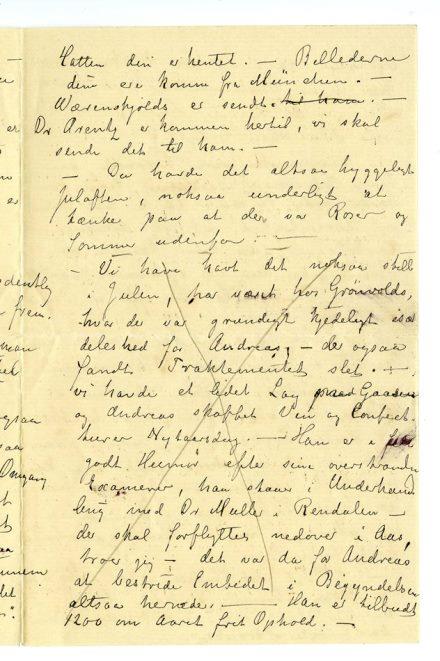 Hatten din er hentet. — Billederne
dine ere komne fra München. —
Wærenskjolds er sendt. til ham. —
Dr Arentz er kommen hertil, vi skal
sende det til ham. —
— Du havde det altsaa hyggeligt
Juleaften, noksaa underligt at
tænke paa at der var Roser og
Sommer udenfor. —
— Vi have havt det noksaa stille
i Julen, har været hos Grönvolds,
hvor de var grundigt kjedeligt især
deles hed for Andreas, — der ogsaa
fandt Traktementet slet. —
vi havde et lidet Lag med Gaasen
og Andreas skaffet Vin og Confect
herver Nytaarsdag. — Han er i
godt Humør efter sine overstandne
Examener, han staaer i Underhand
ling med Dr Müller i Rendalen —
der skal forflyttes nedover i Aas,
troer jeg — det var da for Andreas
at bestride Embedet i Begyndelsen
altsaa hernede. — Han er tilbudt
1200 om Aaret frit Ophold. —
er
frem.
ogsaa
Omgang